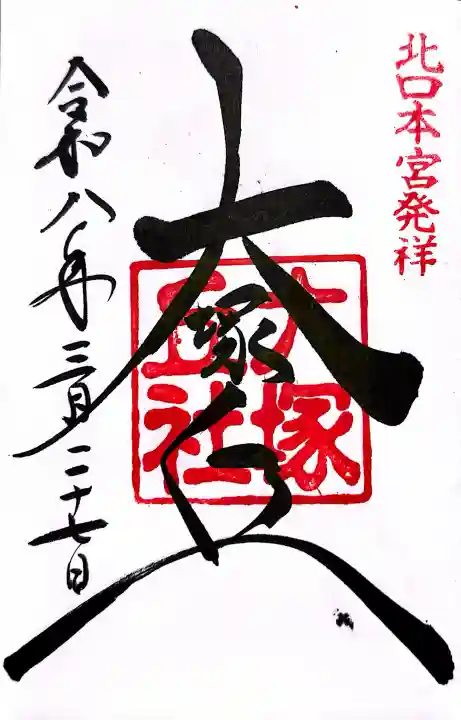 北口本宮発祥
大塚丘
大塚丘社
令和八年三月二十七日